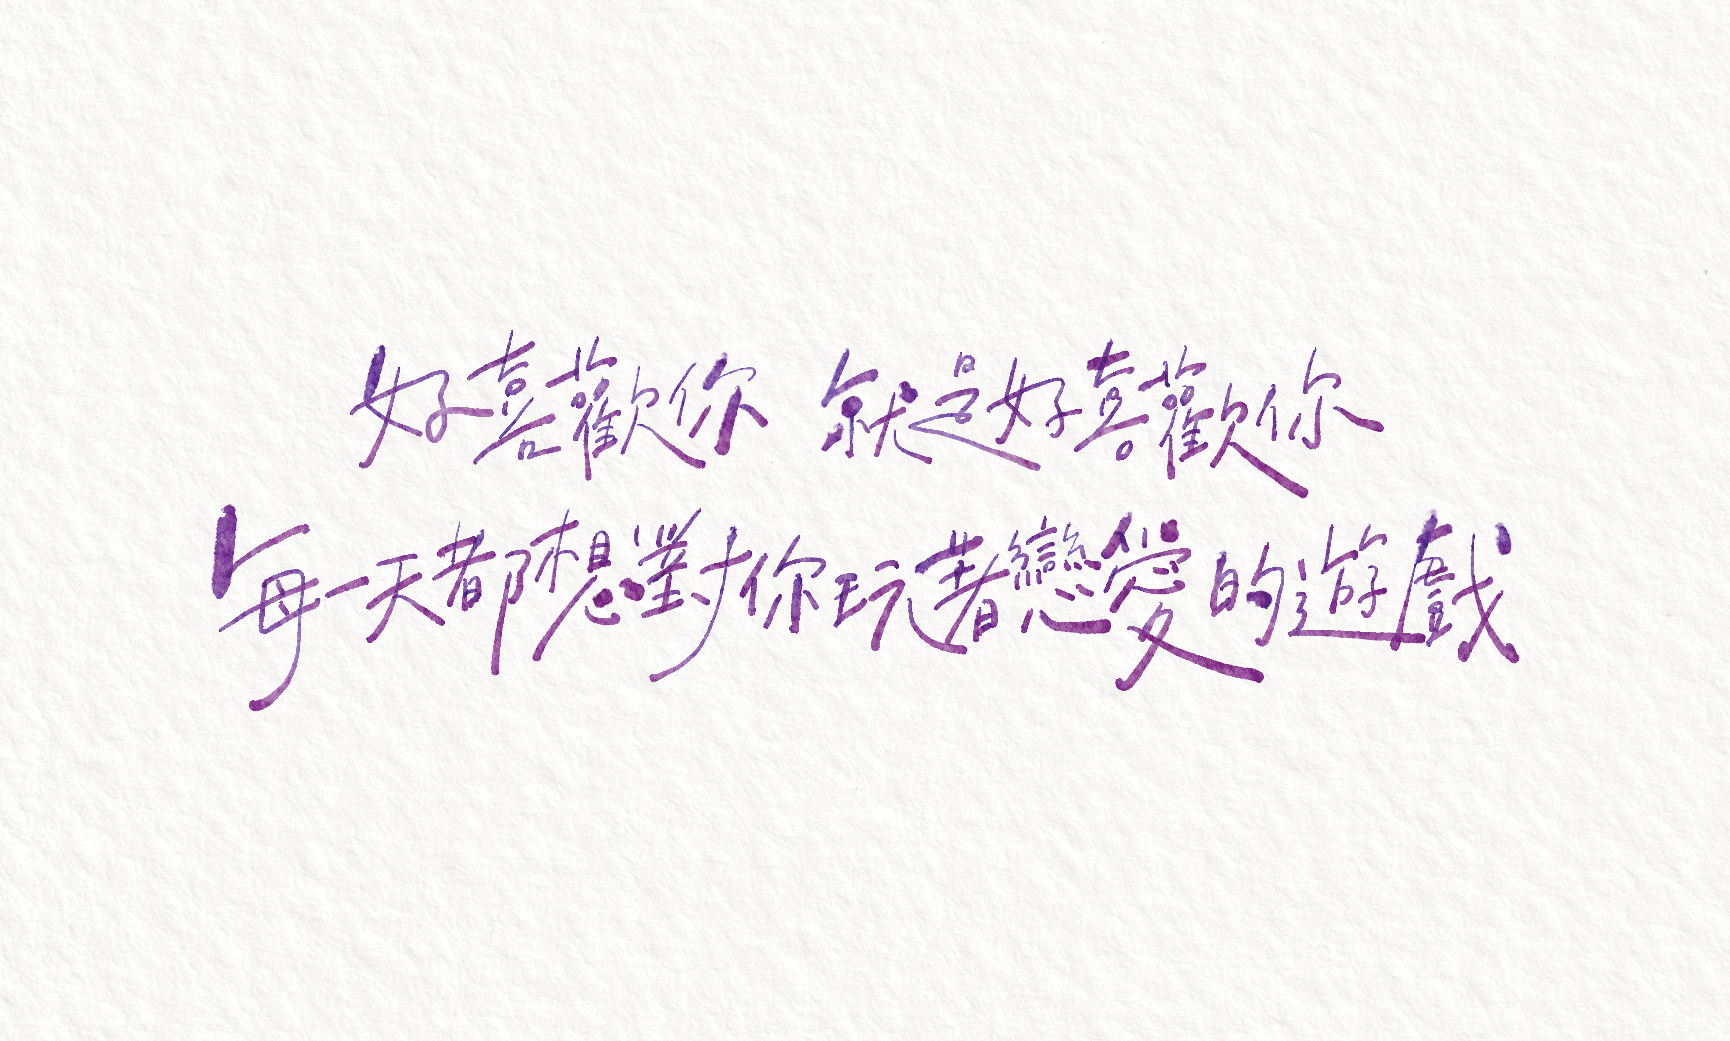 好喜歡你 就是好喜歡你
每一天都想對你玩著戀愛的遊戲